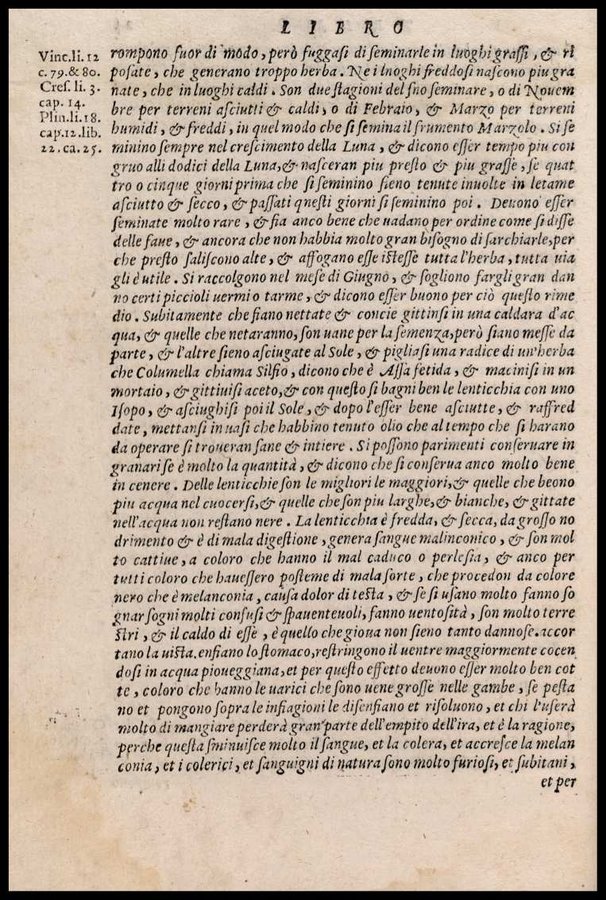 LIBRO
Vinc. li. 12
c. 79. & 80.
Cres. li. 3.
cap. 14.
Plin. li. 18.
cap. 12. lib.
22. ca. 25.
rompono fuor di modo, però fuggasi di seminarle in luoghi grassi, & ri
posate, che generano troppo herba. Ne i luoghi freddosi nascono piu gra
nate, che in luoghi caldi. Son due stagioni del suo seminare, o di Novem
bre per terreni asciutti & caldi, o di Febraio, & Marzo per terreni
humidi, & freddi, in quel modo che si semina il frumento Marzolo. Si se
minino sempre nel crescimento della Luna, & dicono esser tempo piu con
gruo alli dodici della Luna, & nasceran piu presto & piu grasse, se quat
tro o cinque giorni prima che si seminino sieno tenute inuolte in letame
asciutto & secco, & passati questi giorni si seminino poi. Deuono esser
seminate molto rare, & fia anco bene che uadano per ordine come si disse
delle faue, & ancora che non habbia molto gran bisogno di sarchiarle, per
che presto saliscono alte, & affogano esse istesse tutta l'herba, tutta uia
gli è utile. Si raccolgono nel mese di Giugno, & sogliono fargli gran dan
no certi piccioli uermi o tarme, & dicono esser buono per ciò questo rime
dio. Subitamente che siano nettate & concie gittinsi in una caldara d'ac
qua, & quelle che netaranno, son uane per la semenza, però siano messe da
parte, & l'altre sieno asciugate al Sole, & pigliasi una radice di un'herba
che Columella chiama Silfio, dicono che è Assa fetida, & macinisi in un
mortaio, & gittiuisi aceto, & con questo si bagni ben le lenticchia con uno
Isopo, & asciughisi poi il Sole, & dopo l'esser bene asciutte, & raffred
date, mettansi in uasi che habbino tenuto olio che al tempo che si harano
da operare si troueran sane & intiere. Si possono parimenti conseruare in
granari se è molto la quantità, & dicono che si conserua anco molto bene
in cenere. Delle lenticchie son le migliori le maggiori, & quelle che beono
piu acqua nel cuocersi, & quelle che son piu larghe, & bianche, & gittate
nell'acqua non restano nere. La lenticchia è fredda, & secca, da grosso no
drimento & è di mala digestione, genera sangue malinconico, & son mol
to cattiue, a coloro che hanno il mal caduco o perlesia, & anco per
tutti coloro che hauessero posteme di mala sorte, che procedon da colore
nero che è melanconia, causa dolor di testa, & se si usano molto fanno so
gnar sogni molti confusi & spauenteuoli, fanno uentosità, son molto terre
stri, & il caldo di esse, è quello che gioua non sieno tanto dannose. accor
tano la uista. enfiano lo stomaco, restringono il uentre maggiormente cocen
dosi in acqua pioueggiana, et per questo effetto deuono esser molto ben cot
te, coloro che hanno le uarici che sono uene grosse nelle gambe, se pesta
no et pongono sopra le infiagioni le disenfiano et risoluono, et chi l'userà
molto di mangiare perderà gran parte dell'empito dell'ira, et è la ragione,
perche questa sminuisce molto il sangue, et la colera, et accresce la melan
conia, et i colerici, et sanguigni di natura sono molto furiosi, et subitani,
et per